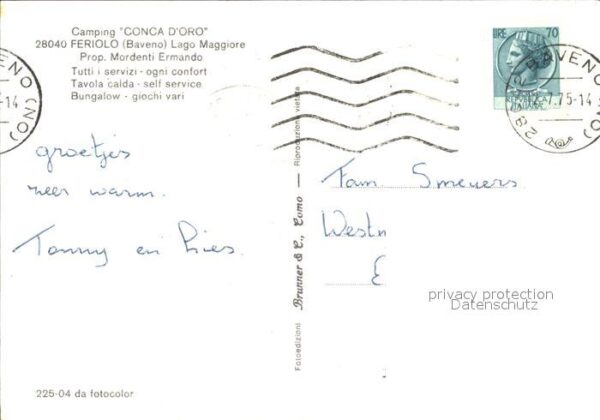 Camping "CONCA D'ORO"
28040 FERIOLO (Baveno) Lago Maggiore
Prop. Mordenti Ermando
Tutti i servizi - ogni confort
Tavola calda - self service
Bungalow - giochi vari
LIRE 70
REPUBBLICA ITALIANA
BAVENO (NO)
7.75-14
groetjes
zeer warm.
Tonny en Lies.
Fam. Smeyers
Westn
E
privacy protection
Datenschutz
Fotoedizioni Brunner & C., Como — Riproduzione vietata
225-04 da fotocolor